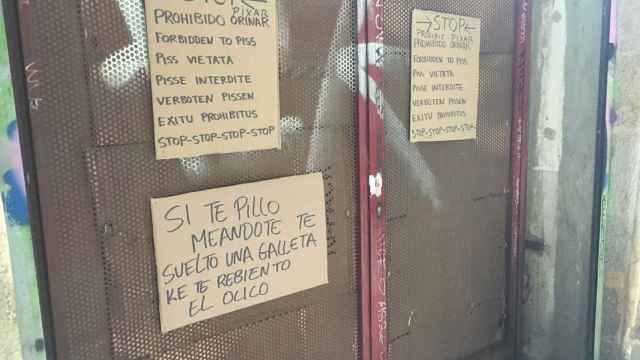 STOP
PIXAR
PROHIBIDO ORINAR
FORBIDDEN TO PISS
PISS VIETATA
PISSE INTERDITE
VERBOTEN PISSEN
EXITU PROHIBITUS
STOP-STOP-STOP-STOP
→STOP←
PROHIBIT PIXAR
PROHIBIDO ORINAR
FORBIDDEN TO PISS
PISS VIETATA
PISSE INTERDITE
VERBOTEN PISSEN
EXITU PROHIBITUS
STOP-STOP-STOP-STOP
SI TE PILLO
MEANDOTE TE
SUELTO UNA GALLETA
KE TE REBIENTO
EL OCICO